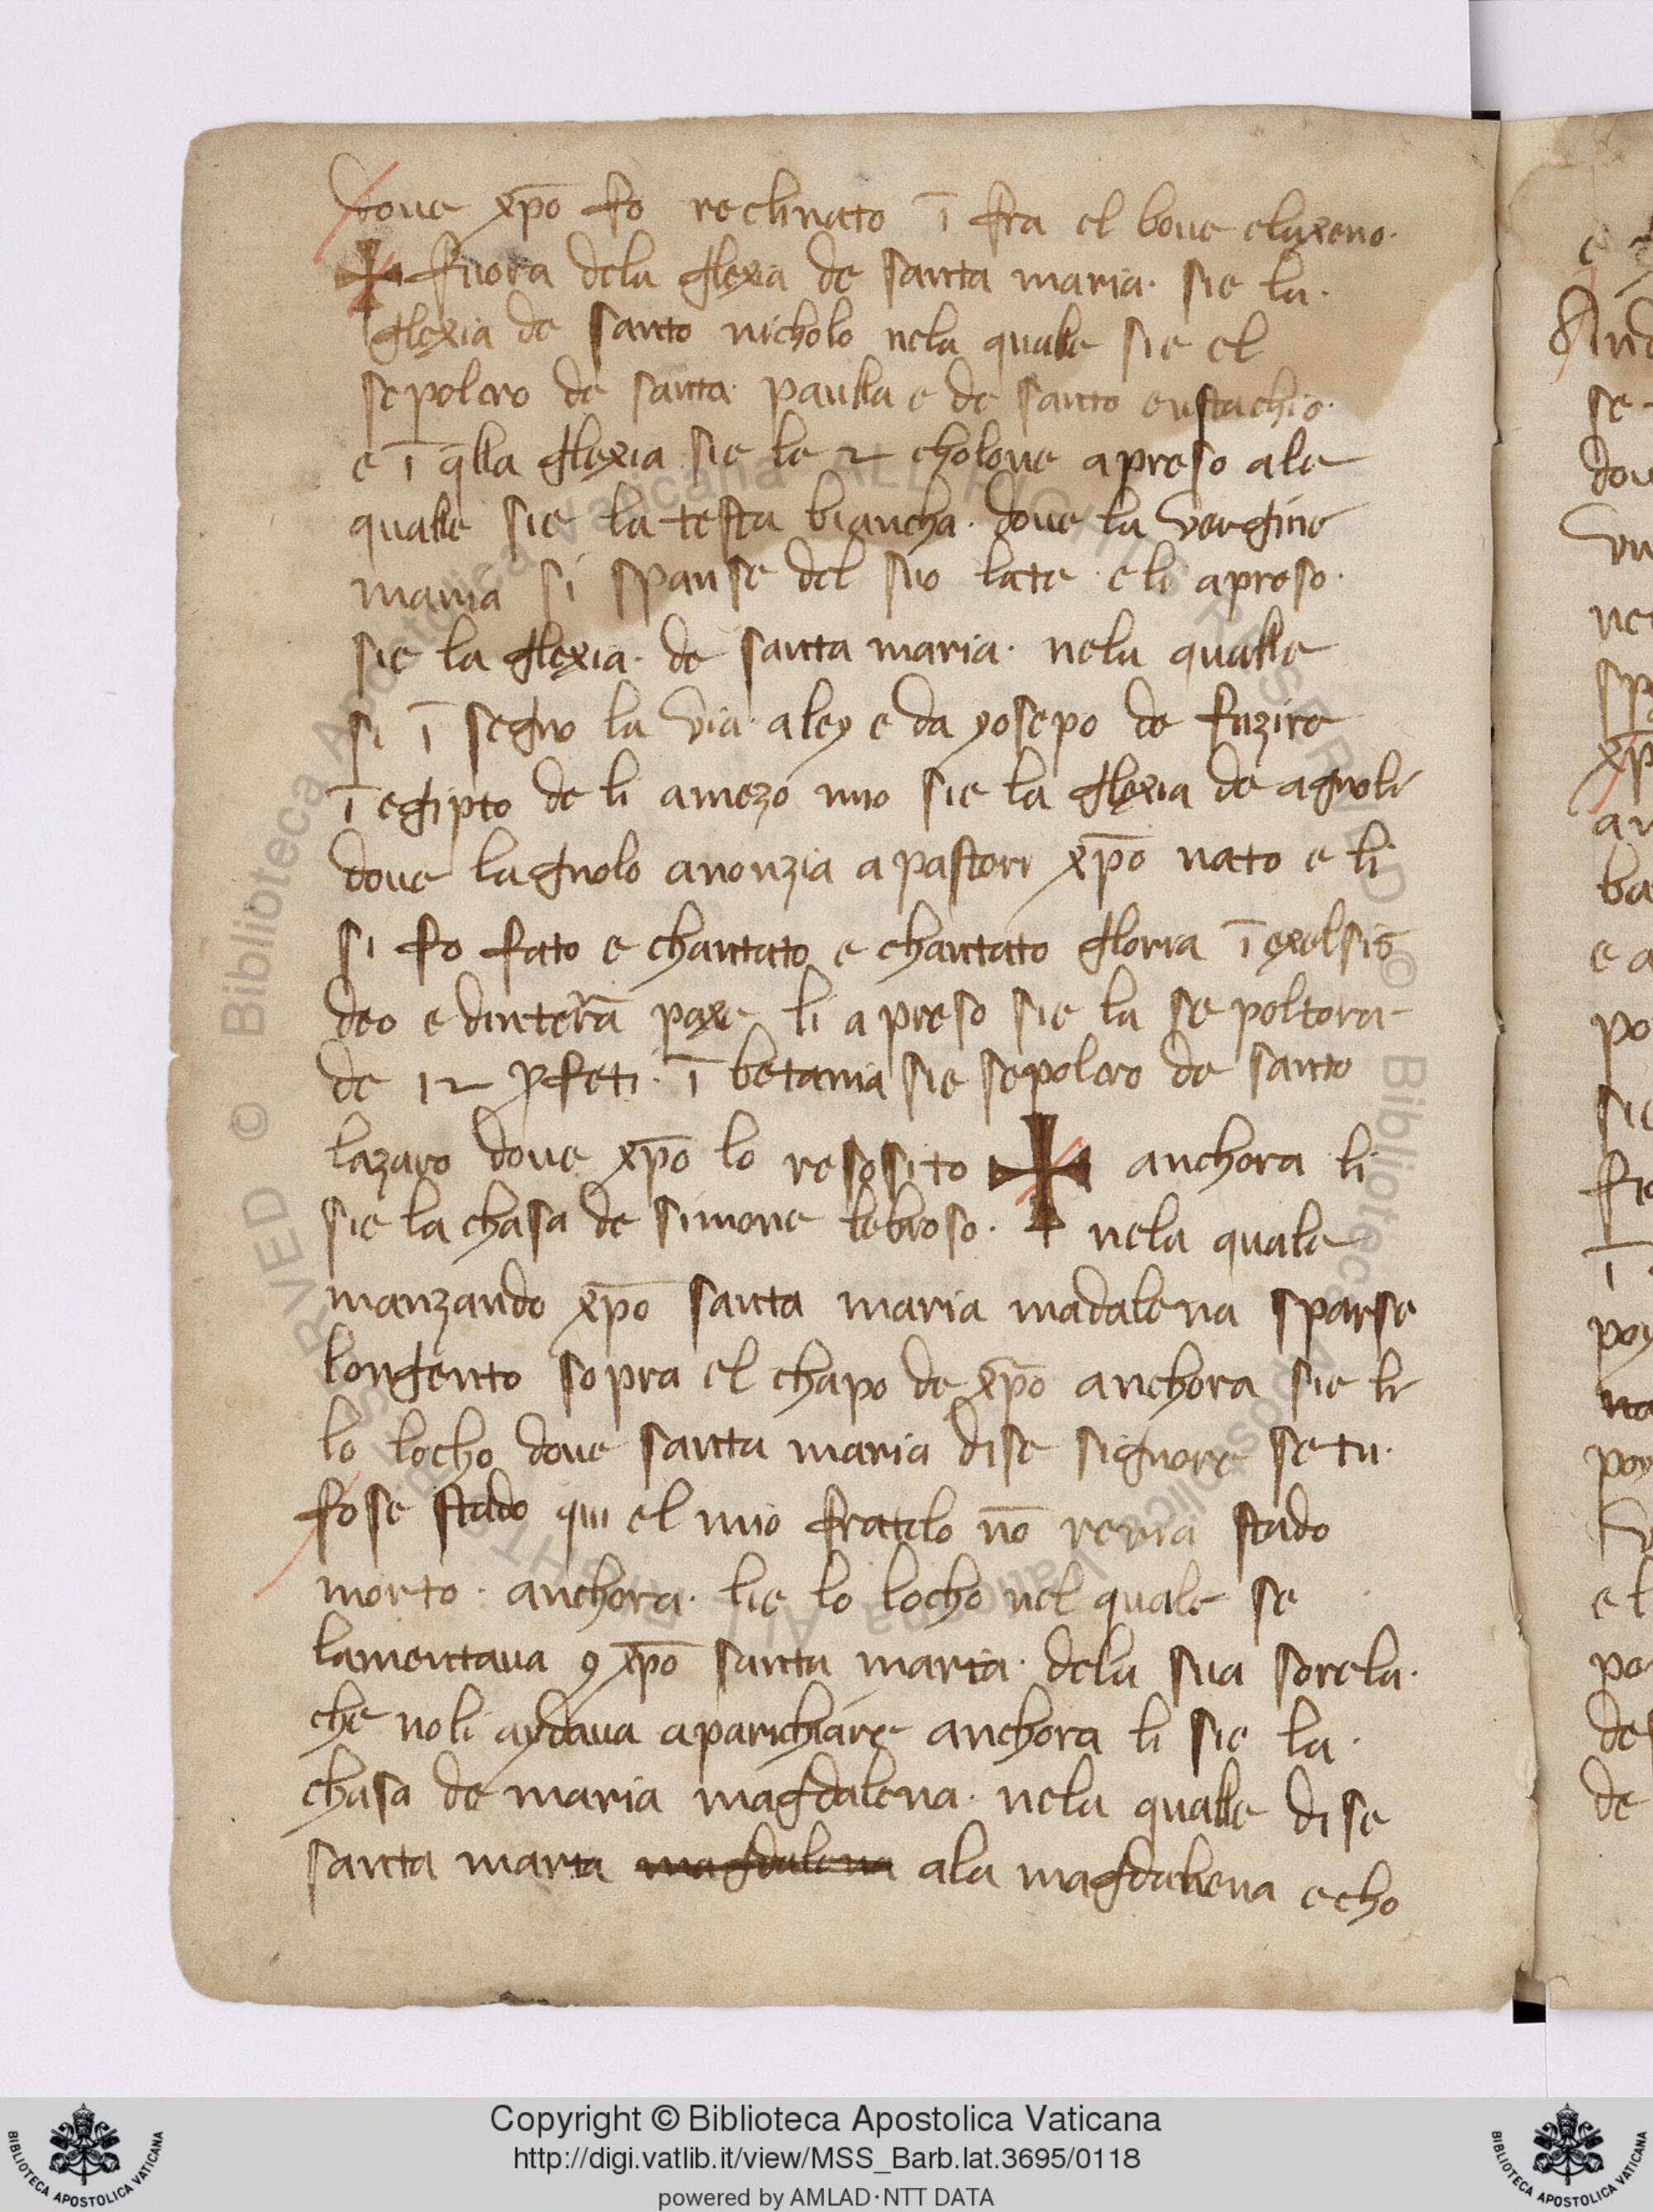 doue xp̄o fo reclinato ī fra el boue elaxeno·
✠ fuora dela glexia de santa maria· sie la·
glexia de santo nicholo nela qualle sie el
sepolcro de santa· paulla e de santo eustachio·
e ī q̄lla glexia sie le 2 cholone apreso ale
qualle sie la testa biancha· doue la vergine
maria si spanse del suo late · e li apreso·
sie la glexia· de santa maria· nela qualle
si ī segno la via· aley e da yosepo de fuzire
ī egipto de li amezo mio sie la glexia de agnoli
doue lagnolo anonzia apastori xp̄o nato e li
si fo fato e chantato e chantato gloria ī exelsis
deo e dinterā paxe li apreso sie la sepoltora
de 12 ꝓfeti· ī betania sie sepolcro de santo
lazaro doue xp̄o lo resosito ✠ anchora li
sie la chasa de simone lebroso· nela quale
manzando xp̄o santa maria madalena sparse
longento sopra el chapo de xp̄o anchora sie li
lo locho doue santa maria dise signore se tu·
fose stado qui el mio fratelo nō reria stado
morto · anchora· lie lo locho nel quale se
lamentaua ꝯ xp̄o santa marta· dela sua sorela·
che noli aydaua aparichiare anchora li sie la·
chasa de maria magdalena· nela qualle dise
santa marta magdalena ala magdalena echo
Copyright © Biblioteca Apostolica Vaticana
http://digi.vatlib.it/view/MSS_Barb.lat.3695/0118
powered by AMLAD·NTT DATA